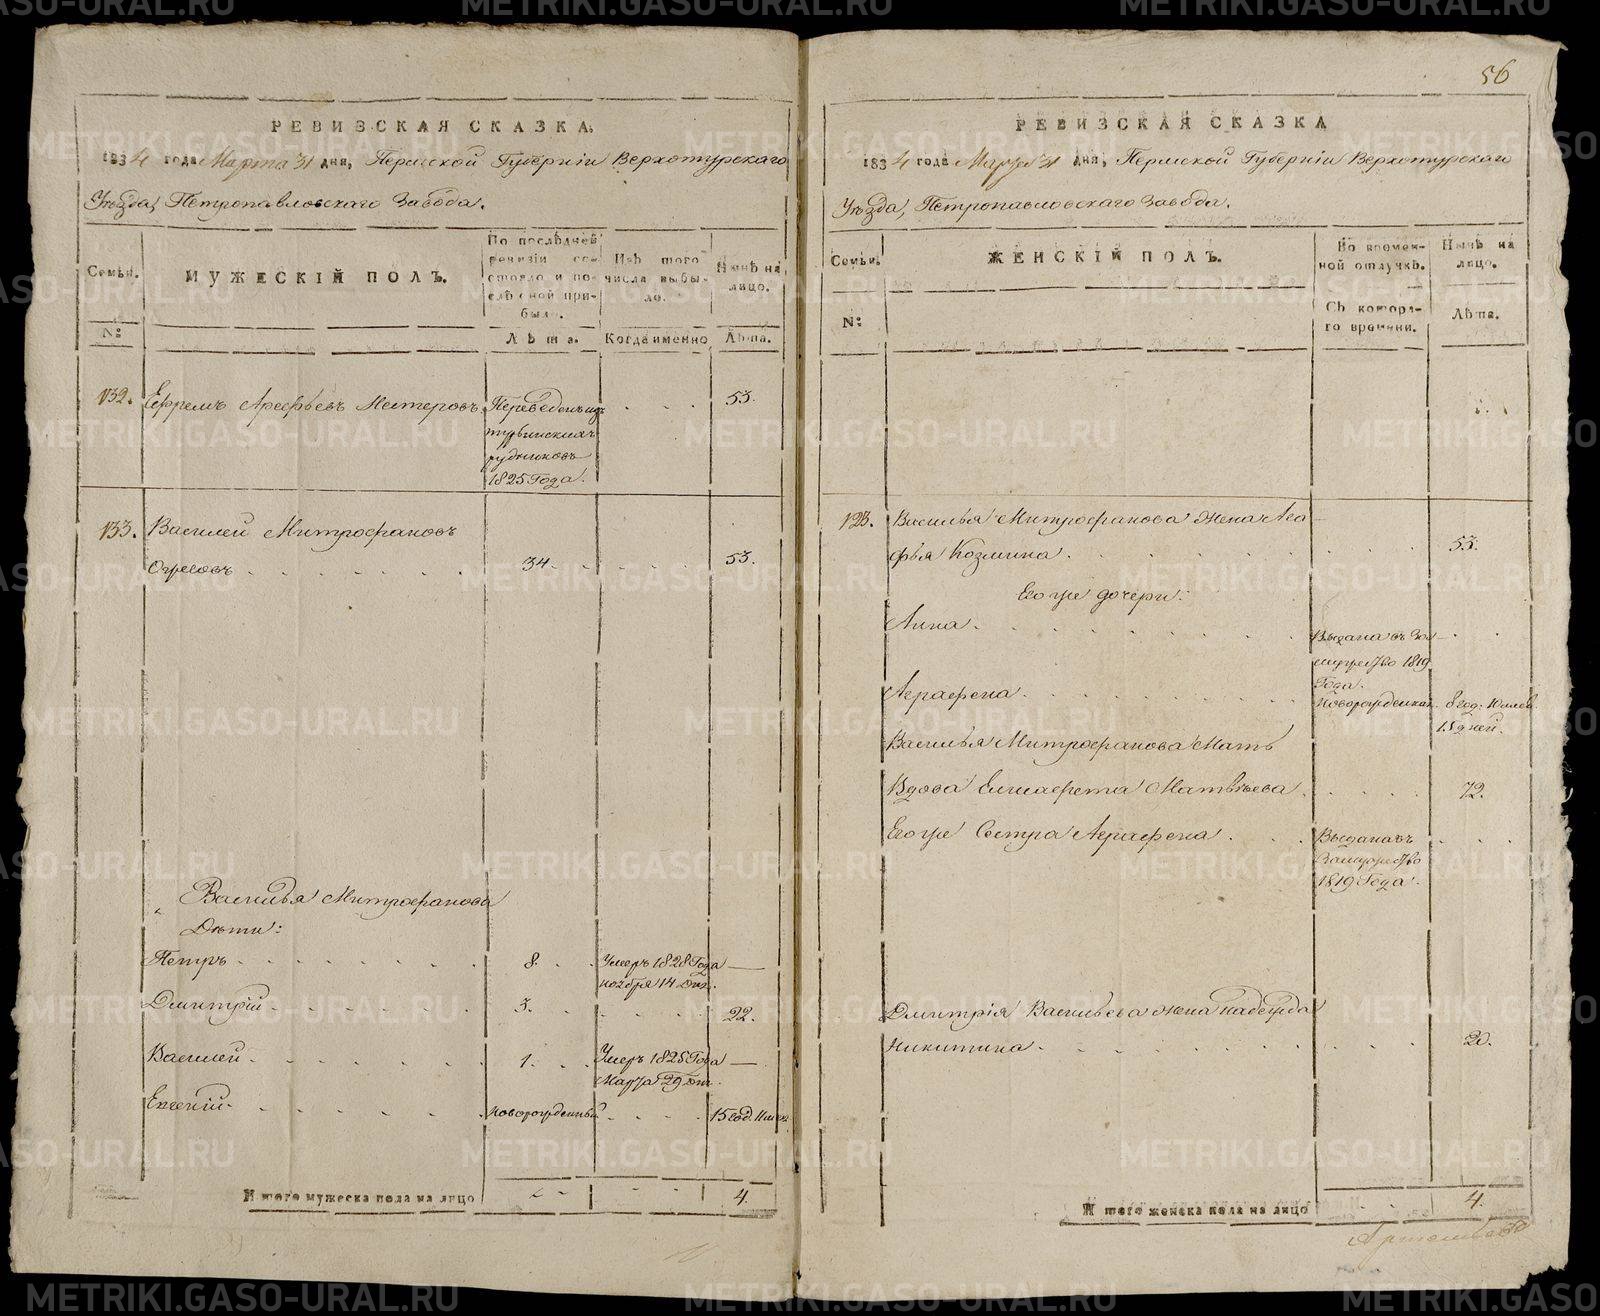 56
РЕВИЗСКАЯ СКАЗКА,
1834 года Марта 31 дня, Пермской Губерніи Верхотурскаго
Уѣзда, Петропавловскаго Завода.
Семьи.
МУЖЕСКІЙ ПОЛЪ.
По послѣдней ревизіи состояло и послѣ оной прибыло.
Изъ того числа выбыло.
Нынѣ на лицо.
№:
Лѣта.
Когда именно
Лѣта.
132. Ефремъ Арефьевъ Нестеровъ Переведенъ изъ 53.
турьинскихъ
рудниковъ
1825 Года.
133. Василей Митрофановъ
34. 53.
Василья Митрофанова
Дѣти:
Петръ 8. Умеръ 1828 Года —
ноября 14 дня.
Дмитрій 3. 22.
Василей 1. Умеръ 1825 Года —
Марта 29 дня.
Евгеній новорожденный 15 год. 11 мес.
Итого мужеска пола на лицо 4.
РЕВИЗСКАЯ СКАЗКА
1834 года Марта 31 дня, Пермской Губерніи Верхотурскаго
Уѣзда, Петропавловскаго Завода.
Семьи.
ЖЕНСКІЙ ПОЛЪ.
Во временной отлучкѣ.
Нынѣ на лицо.
№:
Съ котораго времени.
Лѣта.
Василья Митрофанова жена Ага-
фья Козмина. 53.
Его же дочери:
Анна. Выдана въ за-
мужество 1819
Года.
Аграфена. Новорожденная 8 год. 10 мес.
15 дней.
Василья Митрофанова Мать
Вдова Елисафета Матвѣева. 72.
Его же Сестра Аграфена. Выдана въ
Замужество
1819 Года.
Дмитрія Васильева жена надежда
Никитина. 20.
Итого женска пола на лицо 4.
METRIKI.GASO-URAL.RU